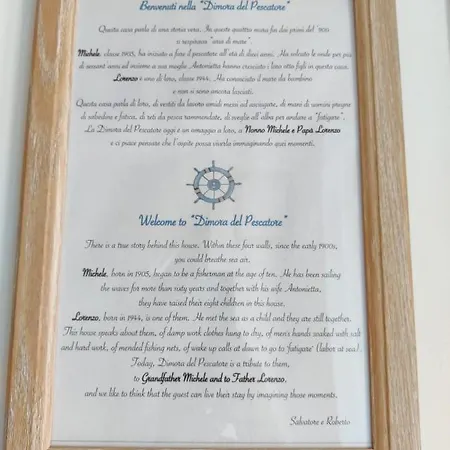 Benvenuti nella "Dimora del Pescatore"
Questa casa parla di una storia vera. In queste quattro mura fin dai primi del '900
si respirava "aria di mare".
Michele, classe 1905, ha iniziato a fare il pescatore all'età di dieci anni. Ha solcato le onde per più
di sessant'anni ed insieme a sua moglie Antonietta hanno cresciuto i loro otto figli in questa casa.
Lorenzo è uno di loro, classe 1944. Ha conosciuto il mare da bambino
e non si sono ancora lasciati.
Questa casa parla di loro, di vestiti da lavoro umidi messi ad asciugare, di mani di uomini pregne
di salsedine e fatica, di reti da pesca rammendate, di sveglie all'alba per andare a "fatigare".
La Dimora del Pescatore oggi è un omaggio a loro, a Nonno Michele e Papà Lorenzo
e ci piace pensare che l'ospite possa viverla immaginando quei momenti.
Welcome to "Dimora del Pescatore"
There is a true story behind this house. Within these four walls, since the early 1900s,
you could breathe sea air.
Michele, born in 1905, began to be a fisherman at the age of ten. He has been sailing
the waves for more than sixty years and together with his wife Antonietta,
they have raised their eight children in this house.
Lorenzo, born in 1944, is one of them. He met the sea as a child and they are still together.
This house speaks about them, of damp work clothes hung to dry, of men's hands soaked with salt
and hard work, of mended fishing nets, of wake up calls at dawn to go to 'fatigare' (labor at sea).
Today, Dimora del Pescatore is a tribute to them,
to Grandfather Michele and to Father Lorenzo,
and we like to think that the guest can live their stay by imagining those moments.
Salvatore e Roberto